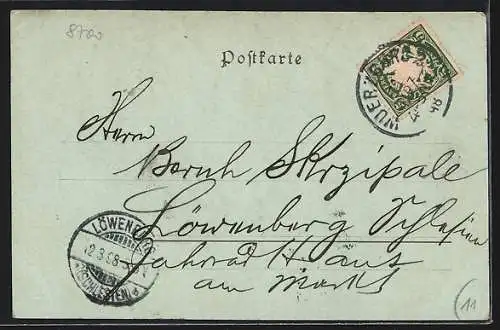 8700
Postkarte
WUERZBURG 2
Herrn
Bernh Skrzipale
Löwenberg Schlesien
Fahrrad Haus
am Markt
LÖWENBERG
12.3.98
11